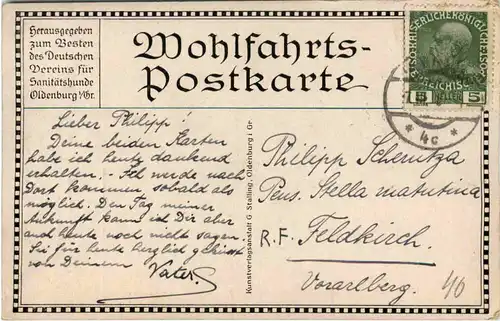 Herausgegeben
zum Besten
des Deutschen
Vereins für
Sanitätshunde
Oldenburg i/Gr.
Wohlfahrts-
Postkarte
KAISERLICHEKÖNIGLICHE
5 HELLER 5
* 4c *
Lieber Philipp!
Deine beiden Karten
habe ich heute dankend
erhalten. - Ich werde nach
Dort kommen, sobald als
möglich. Den Tag meiner
Ankunft kann ich Dir aber
auch heute noch nicht sagen.
Sei für heute herzlich gegrüsst
von Deinem
Vater
Kunstverlagsanstalt G Stalling, Oldenburg i Gr.
Philipp
Pens. Stella matutina
R.F. Feldkirch.
Vorarlberg.
40